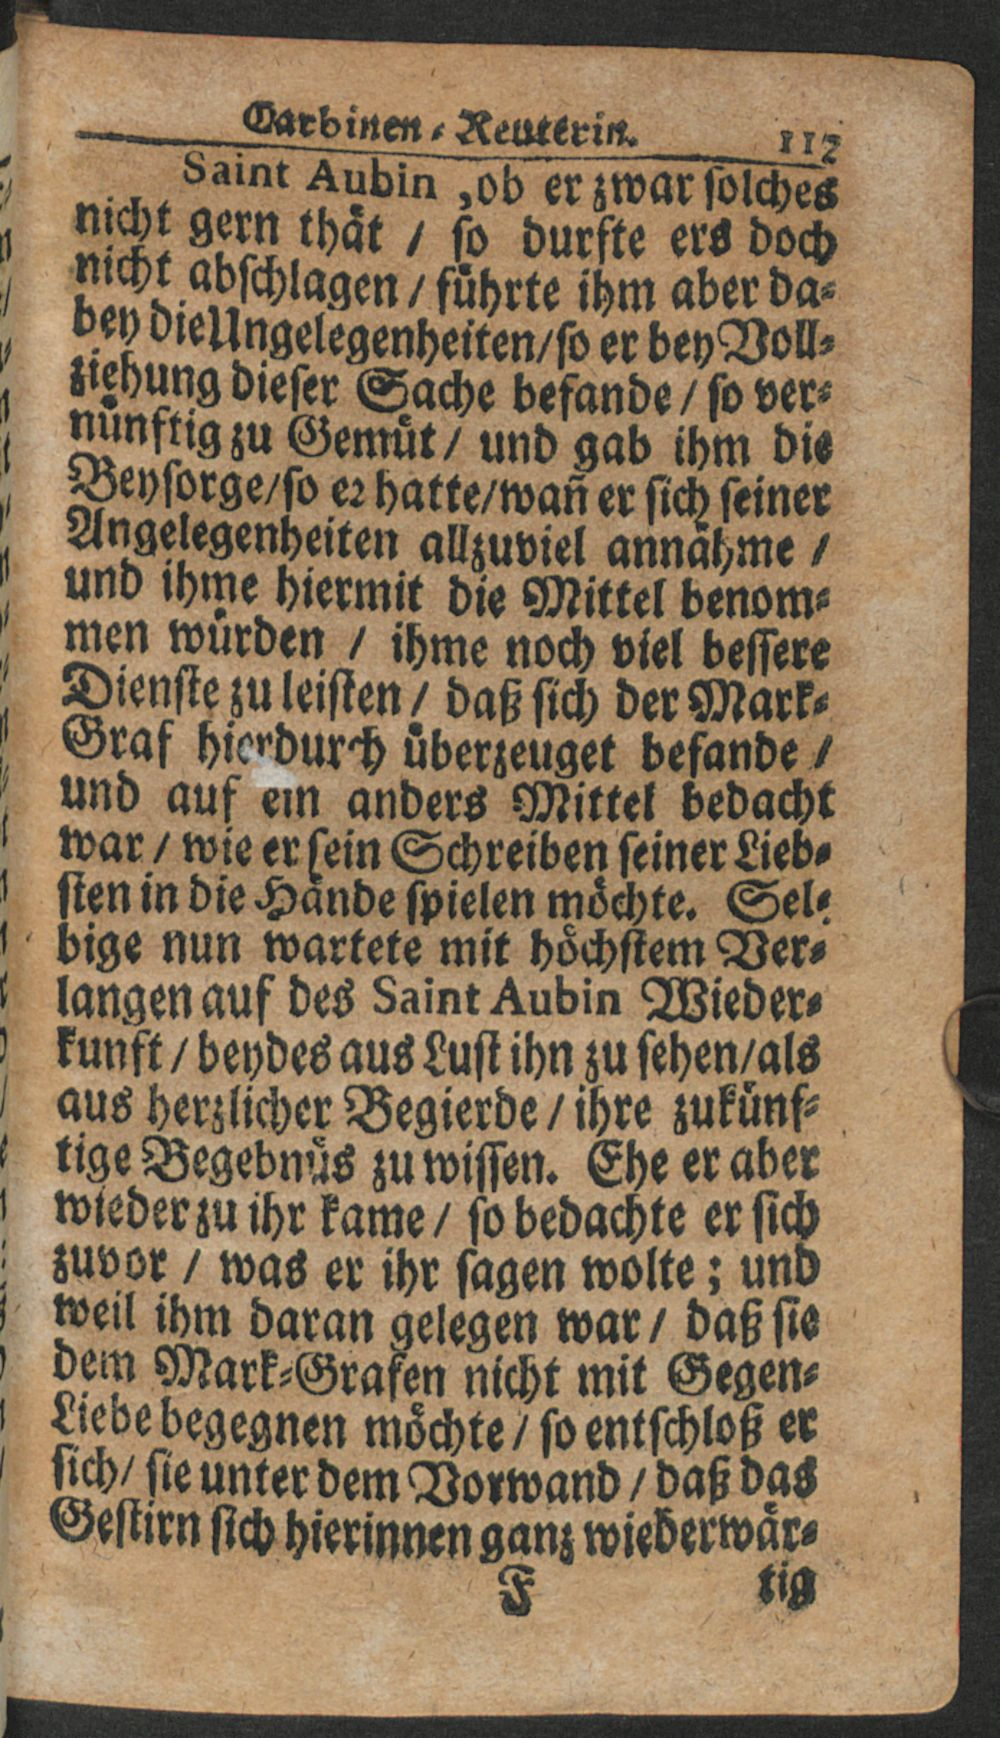 Carbinen-Reuterin. 117
Saint Aubin, ob er zwar solches
nicht gern thät / so durfte ers doch
nicht abschlagen / führte ihm aber da-
bey die Ungelegenheiten / so er bey Voll-
ziehung dieser Sache befande / so ver-
nünftig zu Gemüt / und gab ihm die
Beysorge / so er hatte / wañ er sich seiner
Angelegenheiten allzuviel annähme /
und ihme hiermit die Mittel benom-
men würden / ihme noch viel bessere
Dienste zu leisten / daß sich der Mark-
Graf hierdurch überzeuget befande /
und auf ein anders Mittel bedacht
war / wie er sein Schreiben seiner Lieb-
sten in die Hände spielen möchte. Sel-
bige nun wartete mit höchstem Ver-
langen auf des Saint Aubin Wieder-
kunft / beydes aus Lust ihn zu sehen / als
aus herzlicher Begierde / ihre zukünf-
tige Begebnüs zu wissen. Ehe er aber
wieder zu ihr kame / so bedachte er sich
zuvor / was er ihr sagen wolte; und
weil ihm daran gelegen war / daß sie
dem Mark-Grafen nicht mit Gegen-
Liebe begegnen möchte / so entschloß er
sich / sie unter dem Vorwand / daß das
Gestirn sich hierinnen ganz wiederwär-
F tig